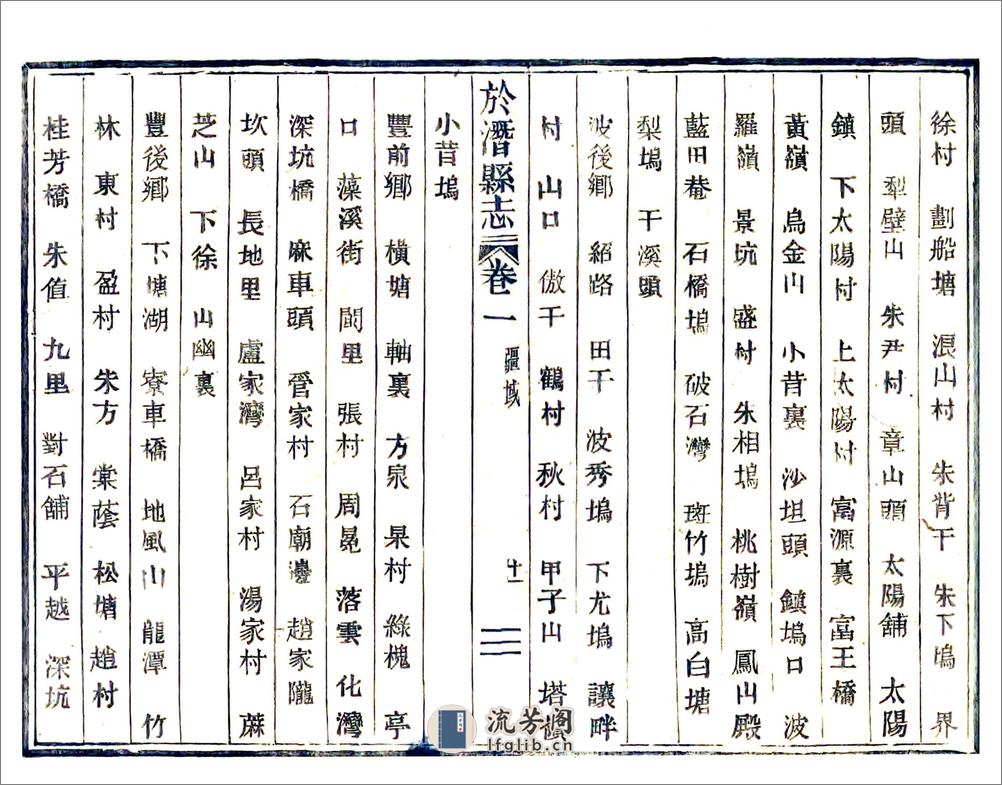 徐村　劃船塘　浪山村　朱背干　朱下塢　界
頭　犁壁山　朱尹村　章山頭　太陽舖　太陽
鎮　下太陽村　上太陽村　富源裏　富王橋
黃嶺　烏金山　小昔裏　沙坦頭　鎮塢口　波
羅嶺　景坑　盛村　朱相塢　桃樹嶺　鳳山殿
藍田菴　石橋塢　破石灣　斑竹塢　高白塘
梨塢　干溪頭
波後鄉　紹路　田干　波秀塢　下尤塢　讓畔
村　山口　傲干　鶴村　秋村　甲子山　塔
於潛縣志　卷一　疆域　十一
小昔塢
豐前鄉　橫塘　軸裏　方泉　杲村　綠槐　亭
口　藻溪街　閭里　張村　周冕　落雲　化灣
深坑橋　麻車頭　管家村　石廟邊　趙家隴
坎頭　長地里　盧家灣　呂家村　湯家村　蔴
芝山　下徐　山幽裏
豐後鄉　下塘湖　寮車橋　地風山　龍潭　竹
林　東村　盈村　朱方　棠蔭　松塘　趙村
桂芳橋　朱值　九里　對石舖　平越　深坑
流芳閣
lfglib.cn